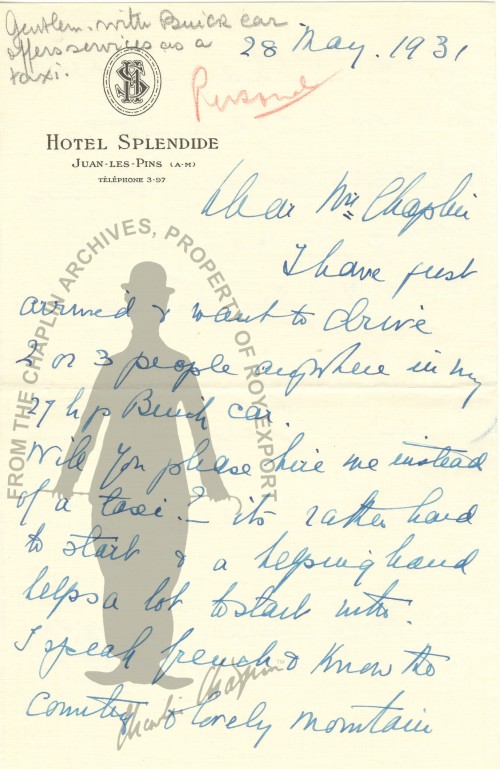 Gentlem. with Buick car
offers services as a
taxi.
28 May. 1931
Personal
HOTEL SPLENDIDE
JUAN-LES-PINS (A-M)
TÉLÉPHONE 3-97
Dear Mr Chaplin
I have just
arrived & want to drive
2 or 3 people anywhere in my
27 hp Buick car.
Will you please hire me instead
of a taxi? - its rather hard
to start & a helping hand
helps a lot to start with.
I speak french & know the
country & lovely mountain
FROM THE CHAPLIN ARCHIVES, PROPERTY OF ROY EXPORT
Charlie Chaplin™